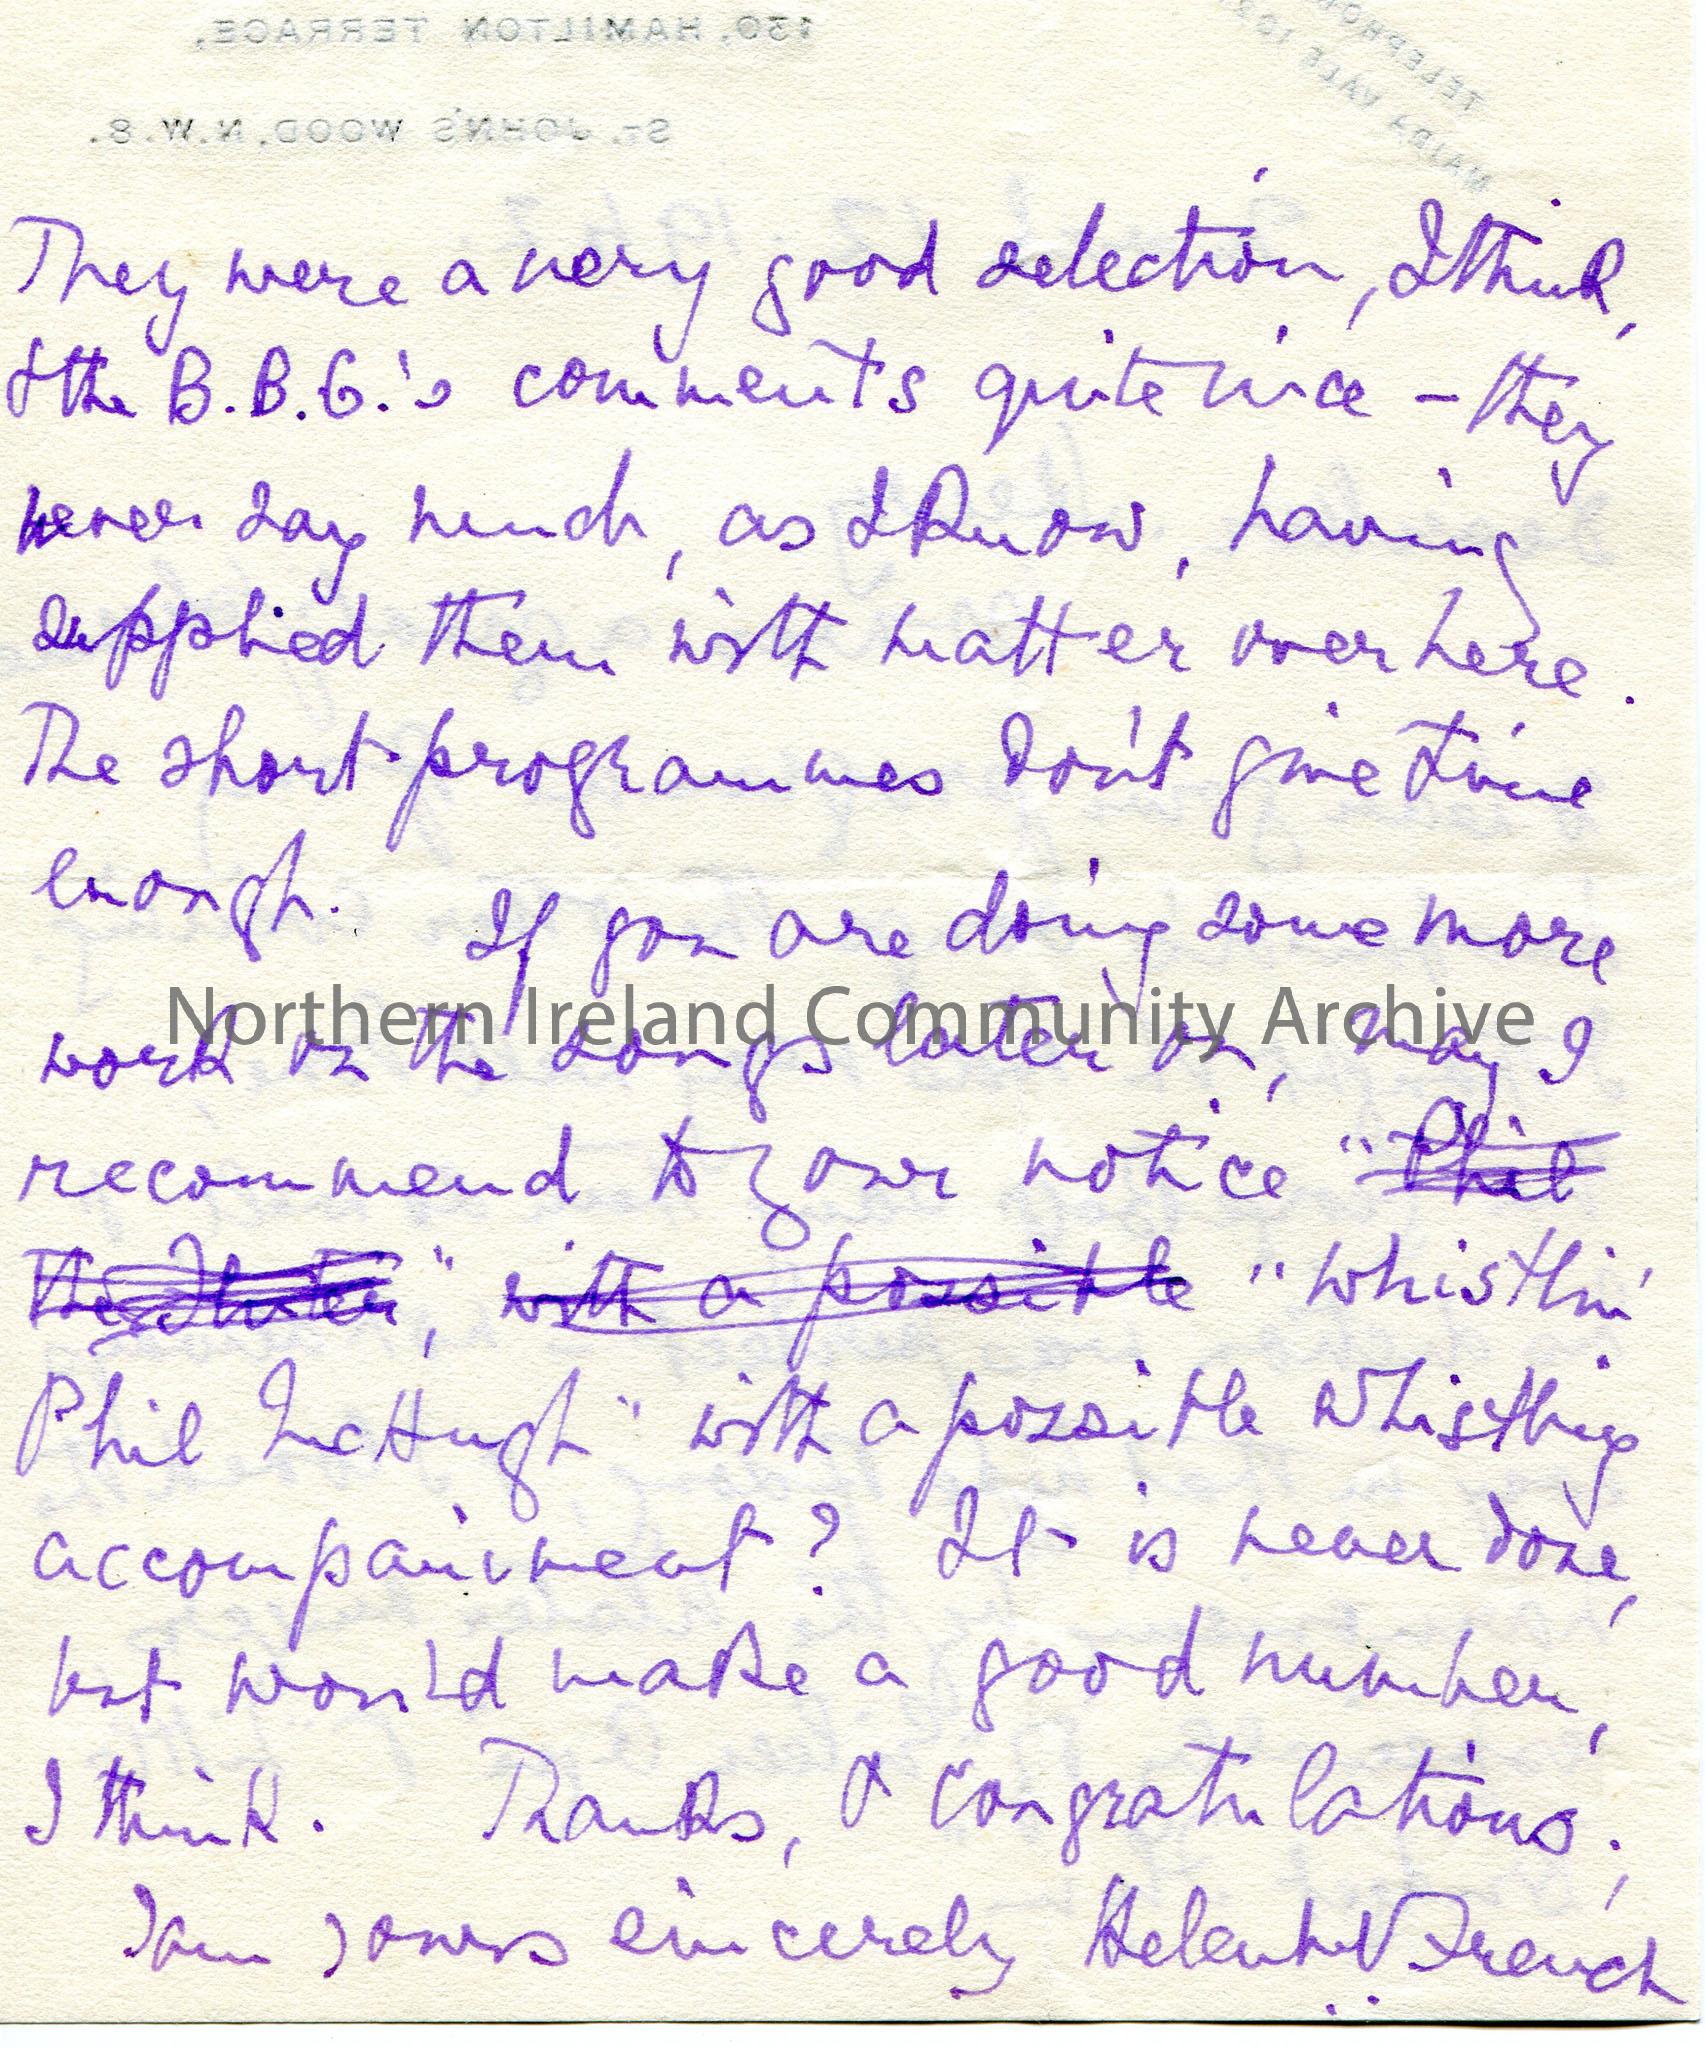 130, HAMILTON TERRACE,
ST. JOHN'S WOOD, N.W.8.
TELEPHO
MAIDA VALE 102
They were a very good selection, I think,
& the B.B.C.'s comments quite nice – they
never say much, as I know, having
supplied them with matter over here.
The short programmes don't give time
enough. If you are doing some more
work on the songs later on, may I
recommend to your notice "Phil
the Fluter", with a possible "Whistlin'
Phil McHugh" with a possible whistling
accompaniment? It is never done,
but would make a good number,
I think. Thanks, & congratulations,
I am yours sincerely Helen French
Northern Ireland Community Archive